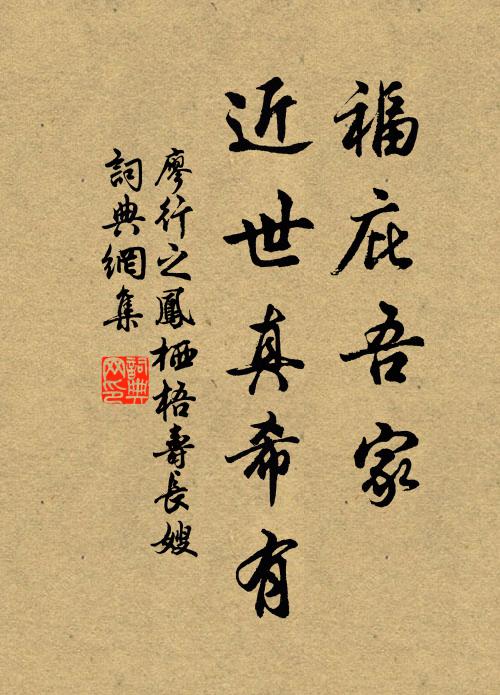 福庇吾家
近世真希有
廖行之鳳栖梧壽長嫂
詞典網集
詞典
网印